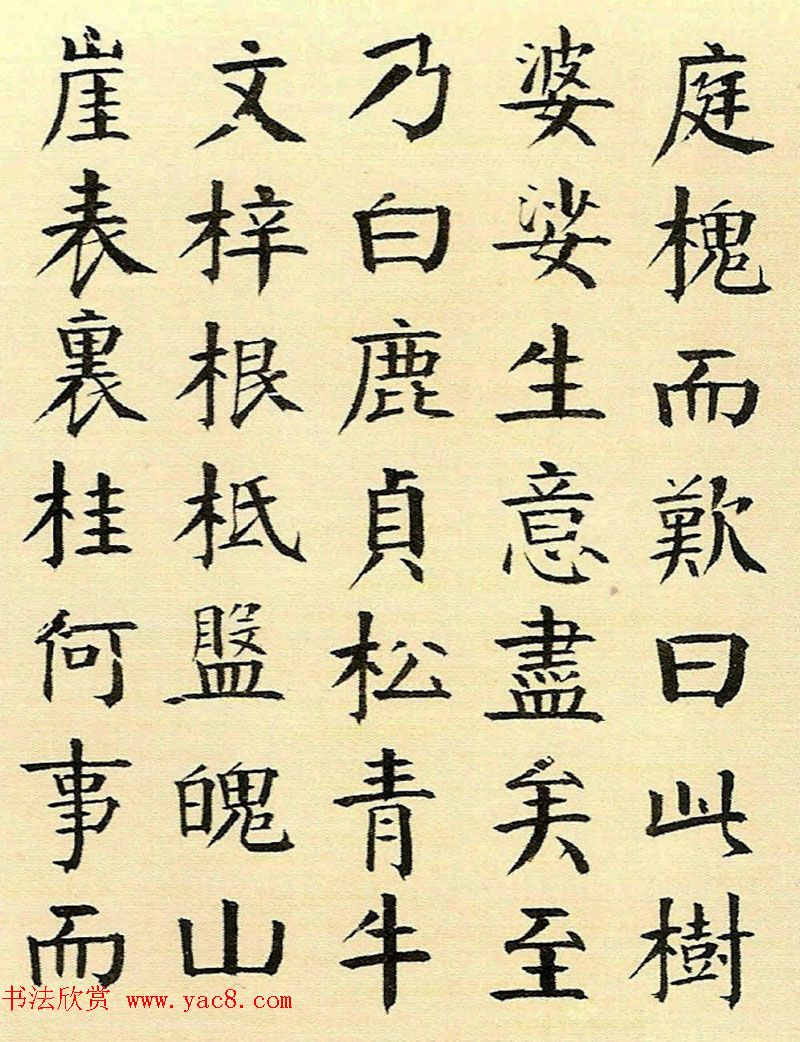 庭槐而歎曰此樹
婆娑生意盡矣至
乃白鹿貞松青牛
文梓根柢盤魄山
崖表裏桂何事而
书法欣赏 www.yac8.com